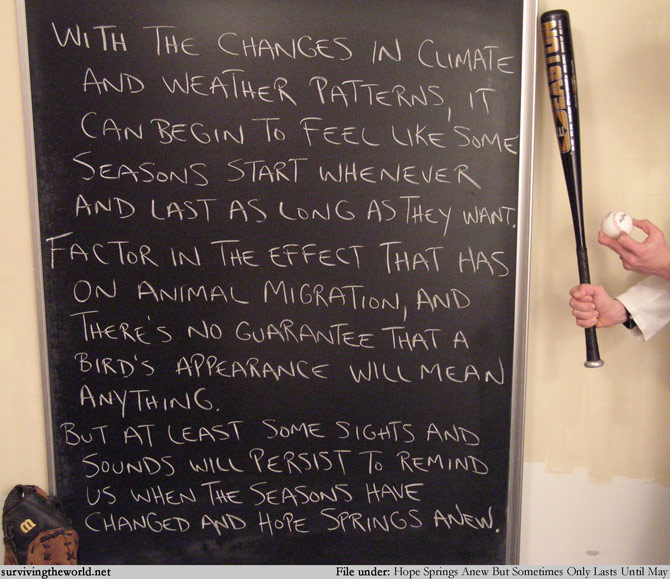 WITH THE CHANGES IN CLIMATE
AND WEATHER PATTERNS, IT
CAN BEGIN TO FEEL LIKE SOME
SEASONS START WHENEVER
AND LAST AS LONG AS THEY WANT.
FACTOR IN THE EFFECT THAT HAS
ON ANIMAL MIGRATION, AND
THERE'S NO GUARANTEE THAT A
BIRD'S APPEARANCE WILL MEAN
ANYTHING.
BUT AT LEAST SOME SIGHTS AND
SOUNDS WILL PERSIST TO REMIND
US WHEN THE SEASONS HAVE
CHANGED AND HOPE SPRINGS ANEW.
EASTON
W
survivingtheworld.net
File under: Hope Springs Anew But Sometimes Only Lasts Until May